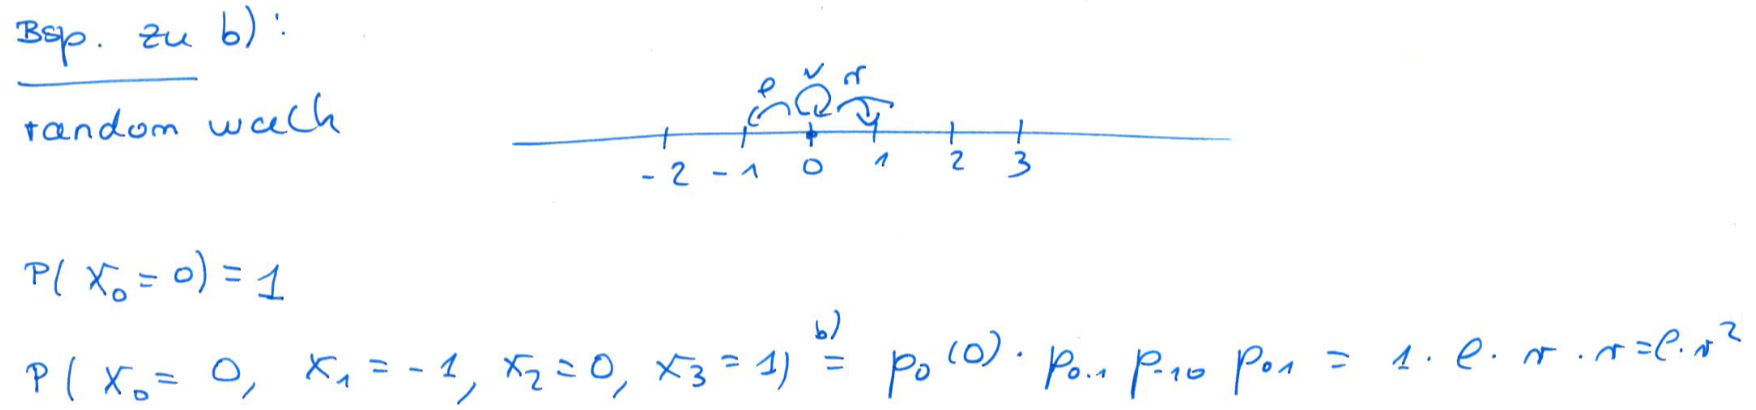 Bsp. zu b):
random walk
l v r
-2 -1 0 1 2 3
P(X₀ = 0) = 1
P(X₀ = 0, X₁ = -1, X₂ = 0, X₃ = 1) =ᵇ⁾ p₀(0) · p₀₋₁ p₋₁₀ p₀₁ = 1 · l · r · r = l · r²